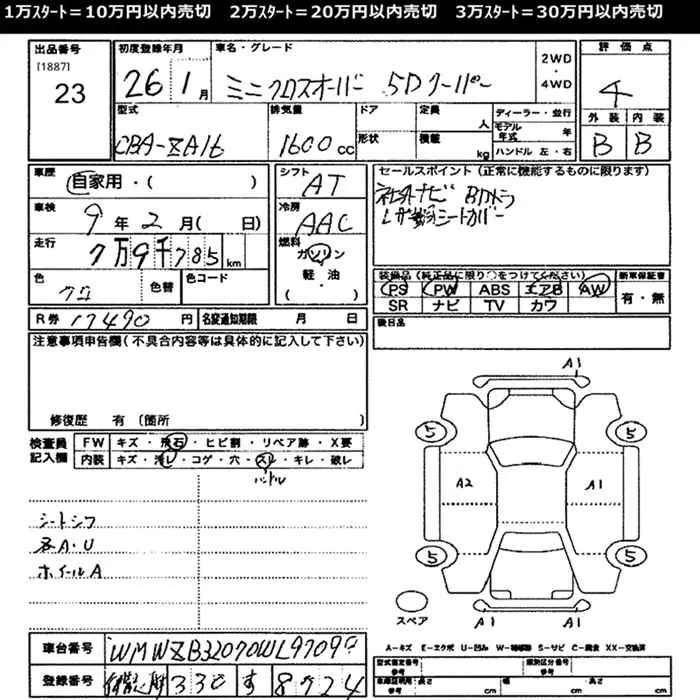 1万ｽﾀｰﾄ＝10万円以内売切　2万ｽﾀｰﾄ＝20万円以内売切　3万ｽﾀｰﾄ＝30万円以内売切
出品番号 初度登録年月 車名・グレード 2WD・4WD 評価点
[1887]
23 26 1月 ミニクロスオーバー 5Dクーパー 4
型式 排気量 ドア 定員 人 ディーラー・並行 外装 内装
CBA-ZA16 1600cc 形状 積載 kg モデル年式 年 B B
ハンドル 左・右
車歴 自家用・( ) シフト AT セールスポイント(正常に機能するものに限ります)
車検 9年2月( 日) 冷房 AAC 社外ナビ Bカメラ
シートカバー
走行 7万9千785km 燃料 ガソリン
軽・油
・( )
色 クロ 色替 色コード
装備品(純正品に限り○をつけてください) 新車保証書
PS PW ABS エアB AW 有・無
SR ナビ TV カワ
R券 17490円 名変通知期限 月 日 後日品
注意事項申告欄(不具合内容等は具体的に記入して下さい)
修復歴 有 (箇所 )
検査員記入欄 FW キズ・飛石・ヒビ割・リペア跡・X要
内装 キズ・汚レ・コゲ・穴・スレ・キレ・破レ
ハンドル
シートシワ
各A・U
ホイールA
A1
5 5
A2 A1
5 5
スペア A1 A1
A-キズ E-エクボ U-凹み W-補修跡 S-サビ C-腐食 XX-交換済
車台番号 WMWZB32070WL97099
登録番号 330 す 8724
型式指定番号 類別区分番号
参考 参考
車庫証明用・長さ 幅 高さ
参考 cm cm cm